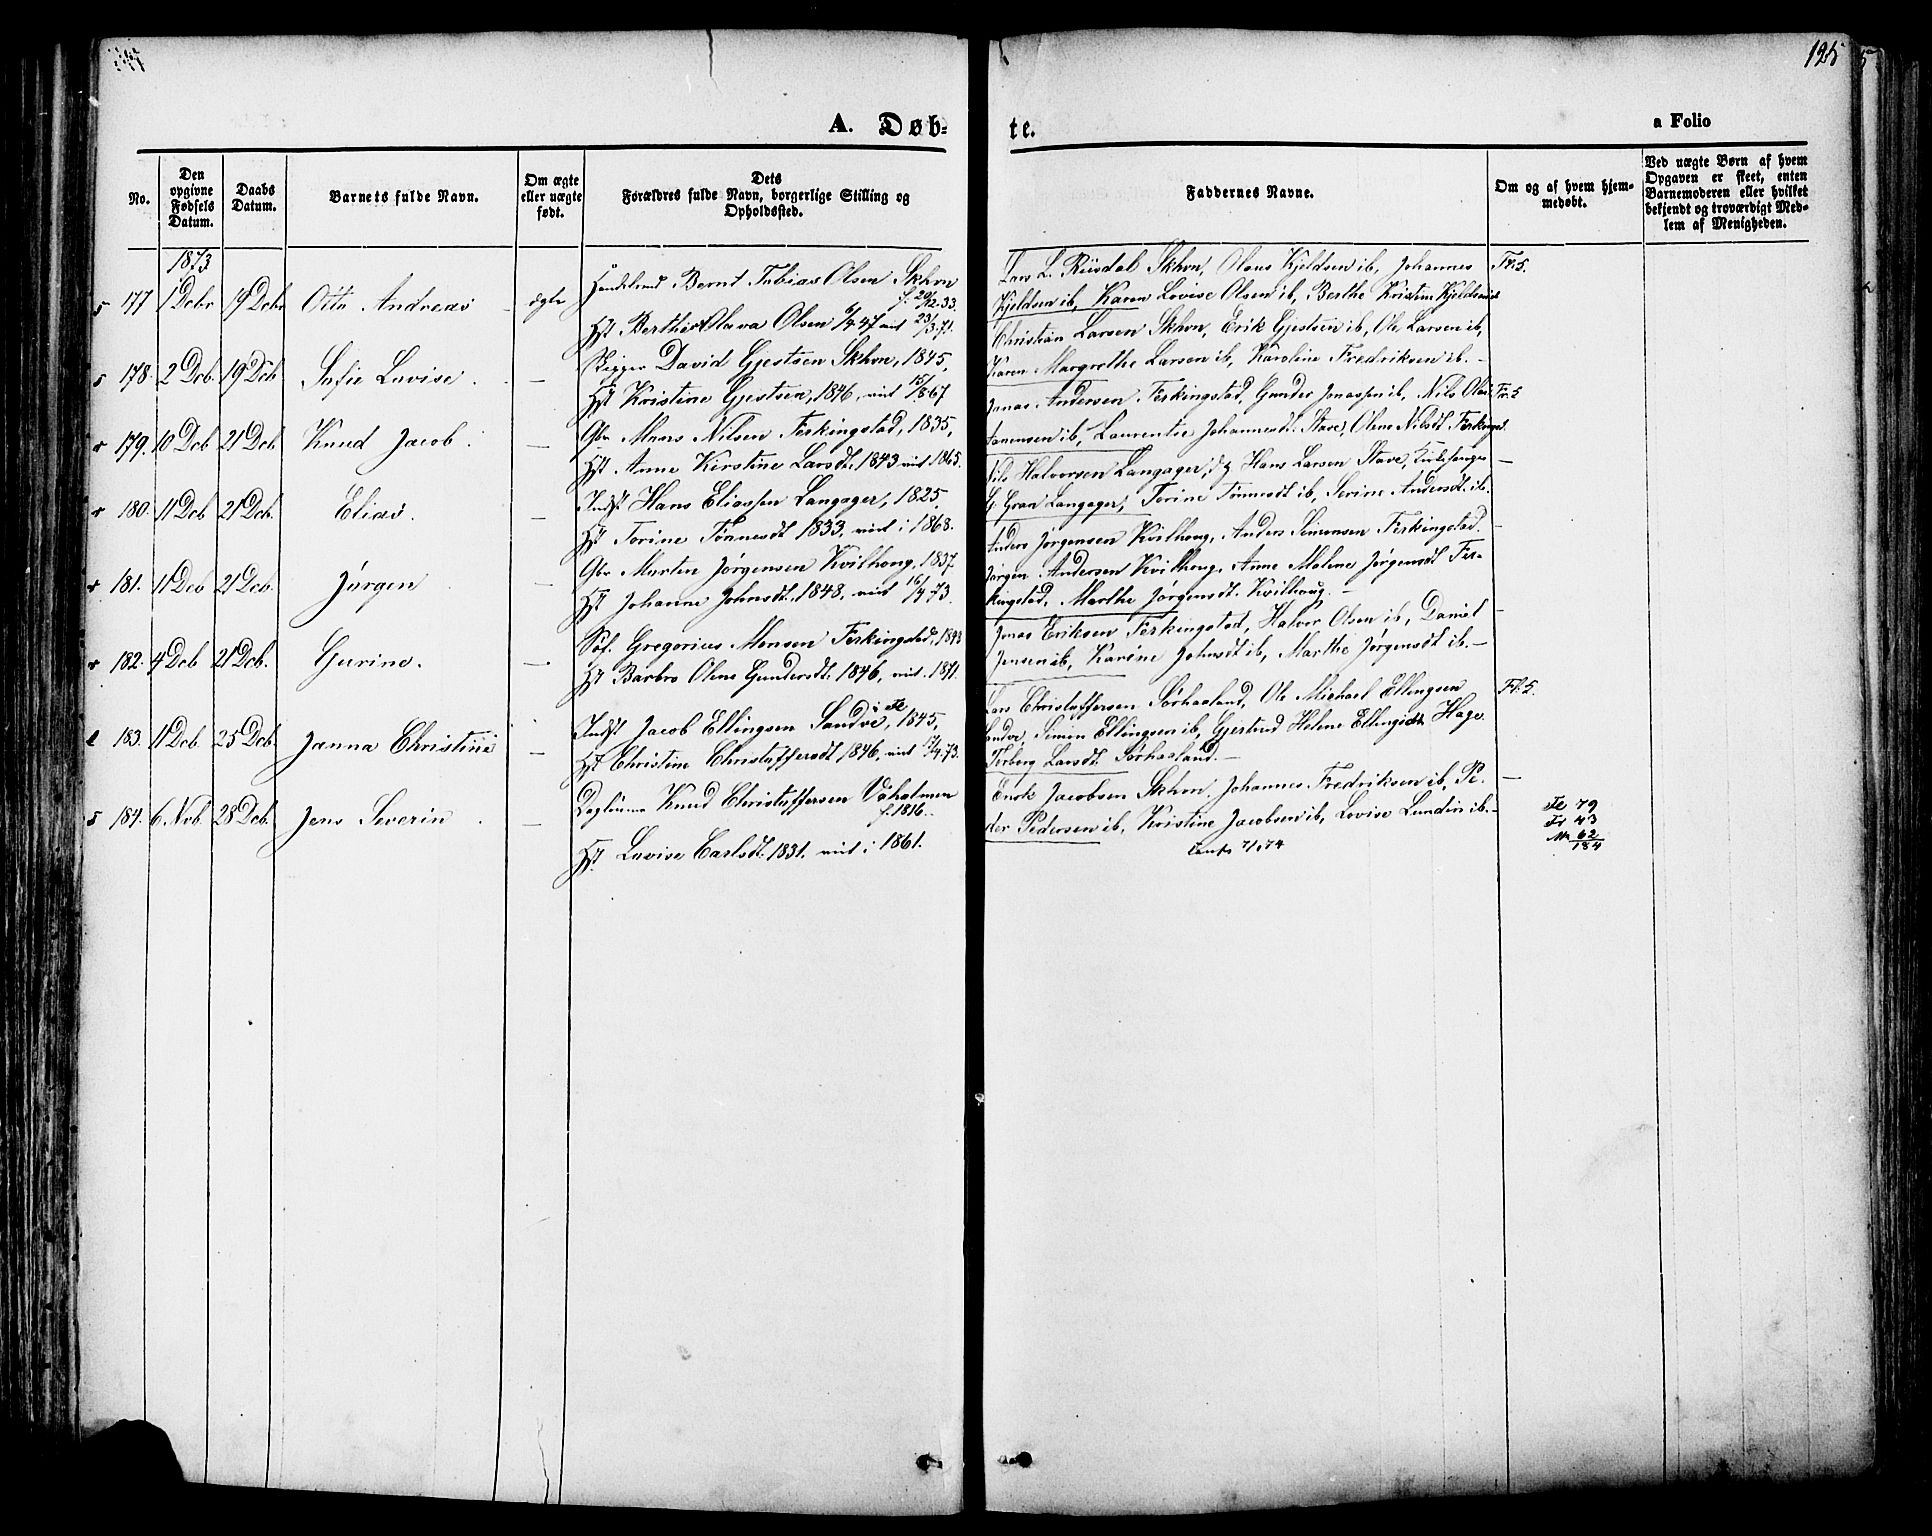 125
A. Døb-
te.
a Folio
No.
Den opgivne Fødsels Datum.
Daabs Datum.
Barnets fulde Navn.
Om ægte eller uægte født.
Dets Forældres fulde Navn, borgerlige Stilling og Opholdssted.
Faddernes Navne.
Om og af hvem hjemmedøbt.
Ved uægte Børn af hvem Opgaven er skeet, enten Barnemoderen eller hvilket bekjendt og troværdigt Medlem af Menigheden.
1873
s 177 1 Decbr 19 Decbr Otto Andreas ægte
Bernt Tobias Olsen Skhvn
f. 20/12.33.
Hst Berthe Olava Olsen 6/4 47 viet 23/3.71.
Lars L. Riisdal Skhvn, Olaus Kjeldsen ib, Johannes
Kjeldsen ib, Karen Lovise Olsen ib, Berthe Kristine Kjeldsen ib
s 178. 2 Dcb. 19 Dcb Sofie Lovise. —
David Gjestsen Skhvn, 1845,
Hst Kristine Gjestsen, 1846, viet 15/8 67
Christian Larsen Skhvn, Erik Gjestsen ib, Ole Larsen ib,
Karen Margrethe Larsen ib, Karoline Fredriksen ib. —
r 179. 10 Dcb 21 Dcb Knud Jacob. —
Gbr Mons Nilsen Ferkingstad, 1835,
Hst. Anne Kirstine Larsdt. 1843 viet 1865.
Jonas Andersen Ferkingstad, Gunder Jonassen ib, Nils Olai
ib, Laurentse Johannesdt. Stave, Olene Nilsdt Ferkingst.
r 180. 11 Dcb 21 Dcb. Elias. —
Indst Hans Eliassen Langager, 1825,
Hst Torine Tønnesdt 1833, viet i 1868.
Nils Halvorsen Langager, Hans Larsen Stave, Kirkesanger
G. Gran Langager, Torine Tønnesdt ib, Serine Andersdt. ib. —
r 181. 11 Dcb 21 Dcb. Jørgen —
Gbr Morten Jørgensen Kvilhoug, 1837
Hst Johanne Johnsdt. 1848, viet 16/4 73.
Anders Jørgensen Kvilhoug, Anders Simonsen Ferkingstad,
Jørgen Andersen Kvilhoug, Anne Malene Jørgensdt Fer-
kingstad, Marthe Jørgensdt. Kvilhoug. —
r 182. 4 Dcb 21 Dcb. Gurine. —
Gregorius Monsen Ferkingstad, 1843
Hst Barbro Olene Gundersdt. 1846, viet 1871.
Jonas Eriksen Ferkingstad, Halvor Olsen ib, Daniel
Jensen ib, Karine Johnsdt ib, Marthe Jørgensdt ib. —
183. 11 Dcb. 25 Dcb. Janna Christine —
Indst Jacob Ellingsen Sandve, 1845,
Hst Christine Christoffersdt 1846, viet 17/4.73.
Lars Christoffersen Sørhaaland, Ole Michael Ellingsen
Sandve, Simon Ellingsen ib, Gjertrud Helene Ellingsdt Hage
Larsdt. Sørhaaland. —
s 184. 6. Nvb. 28 Dcb. Jens Severin. —
Knud Christoffersen
f. 1816.
Hst. Lovise Carlsdt. 1831, viet i 1861.
Jacobsen Skhvn, Johannes Fredriksen ib, Pe-
der Pedersen ib, Kristine Jacobsen ib, Lovise Lundin ib. —
Fe 79
Fr 43
62
184